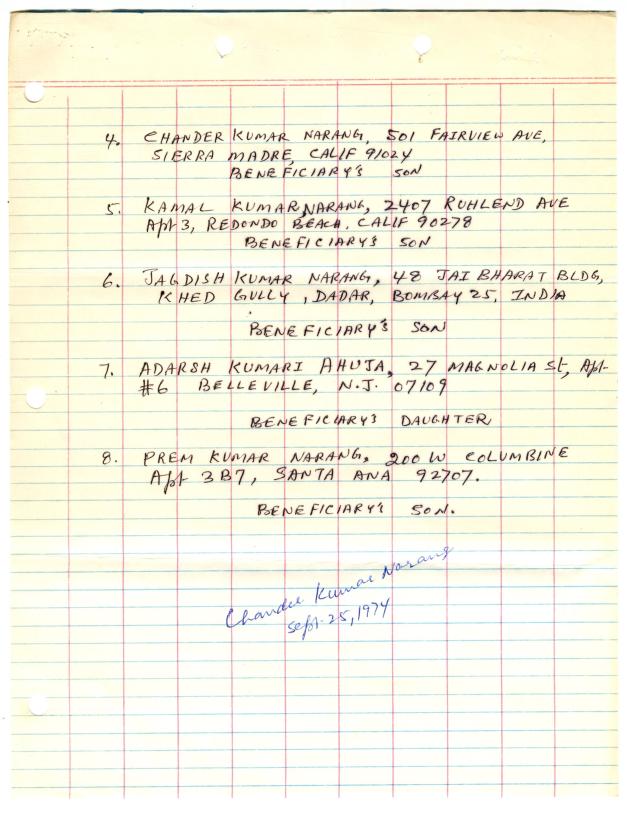 4. CHANDER KUMAR NARANG, 501 FAIRVIEW AVE,
SIERRA MADRE, CALIF 91024
BENEFICIARY'S SON
5. KAMAL KUMAR NARANG, 2407 RUHLEND AVE
Apt 3, REDONDO BEACH, CALIF 90278
BENEFICIARY'S SON
6. JAGDISH KUMAR NARANG, 48 JAI BHARAT BLDG,
KHED GULLY, DADAR, BOMBAY 25, INDIA
BENEFICIARY'S SON
7. ADARSH KUMARI AHUJA, 27 MAGNOLIA St, Apt-
#6 BELLEVILLE, N.J. 07109
BENEFICIARY'S DAUGHTER
8. PREM KUMAR NARANG, 200 W COLUMBINE
Apt 3B7, SANTA ANA 92707.
BENEFICIARY'S SON.
Chander Kumar Narang
Sept. 25, 1974